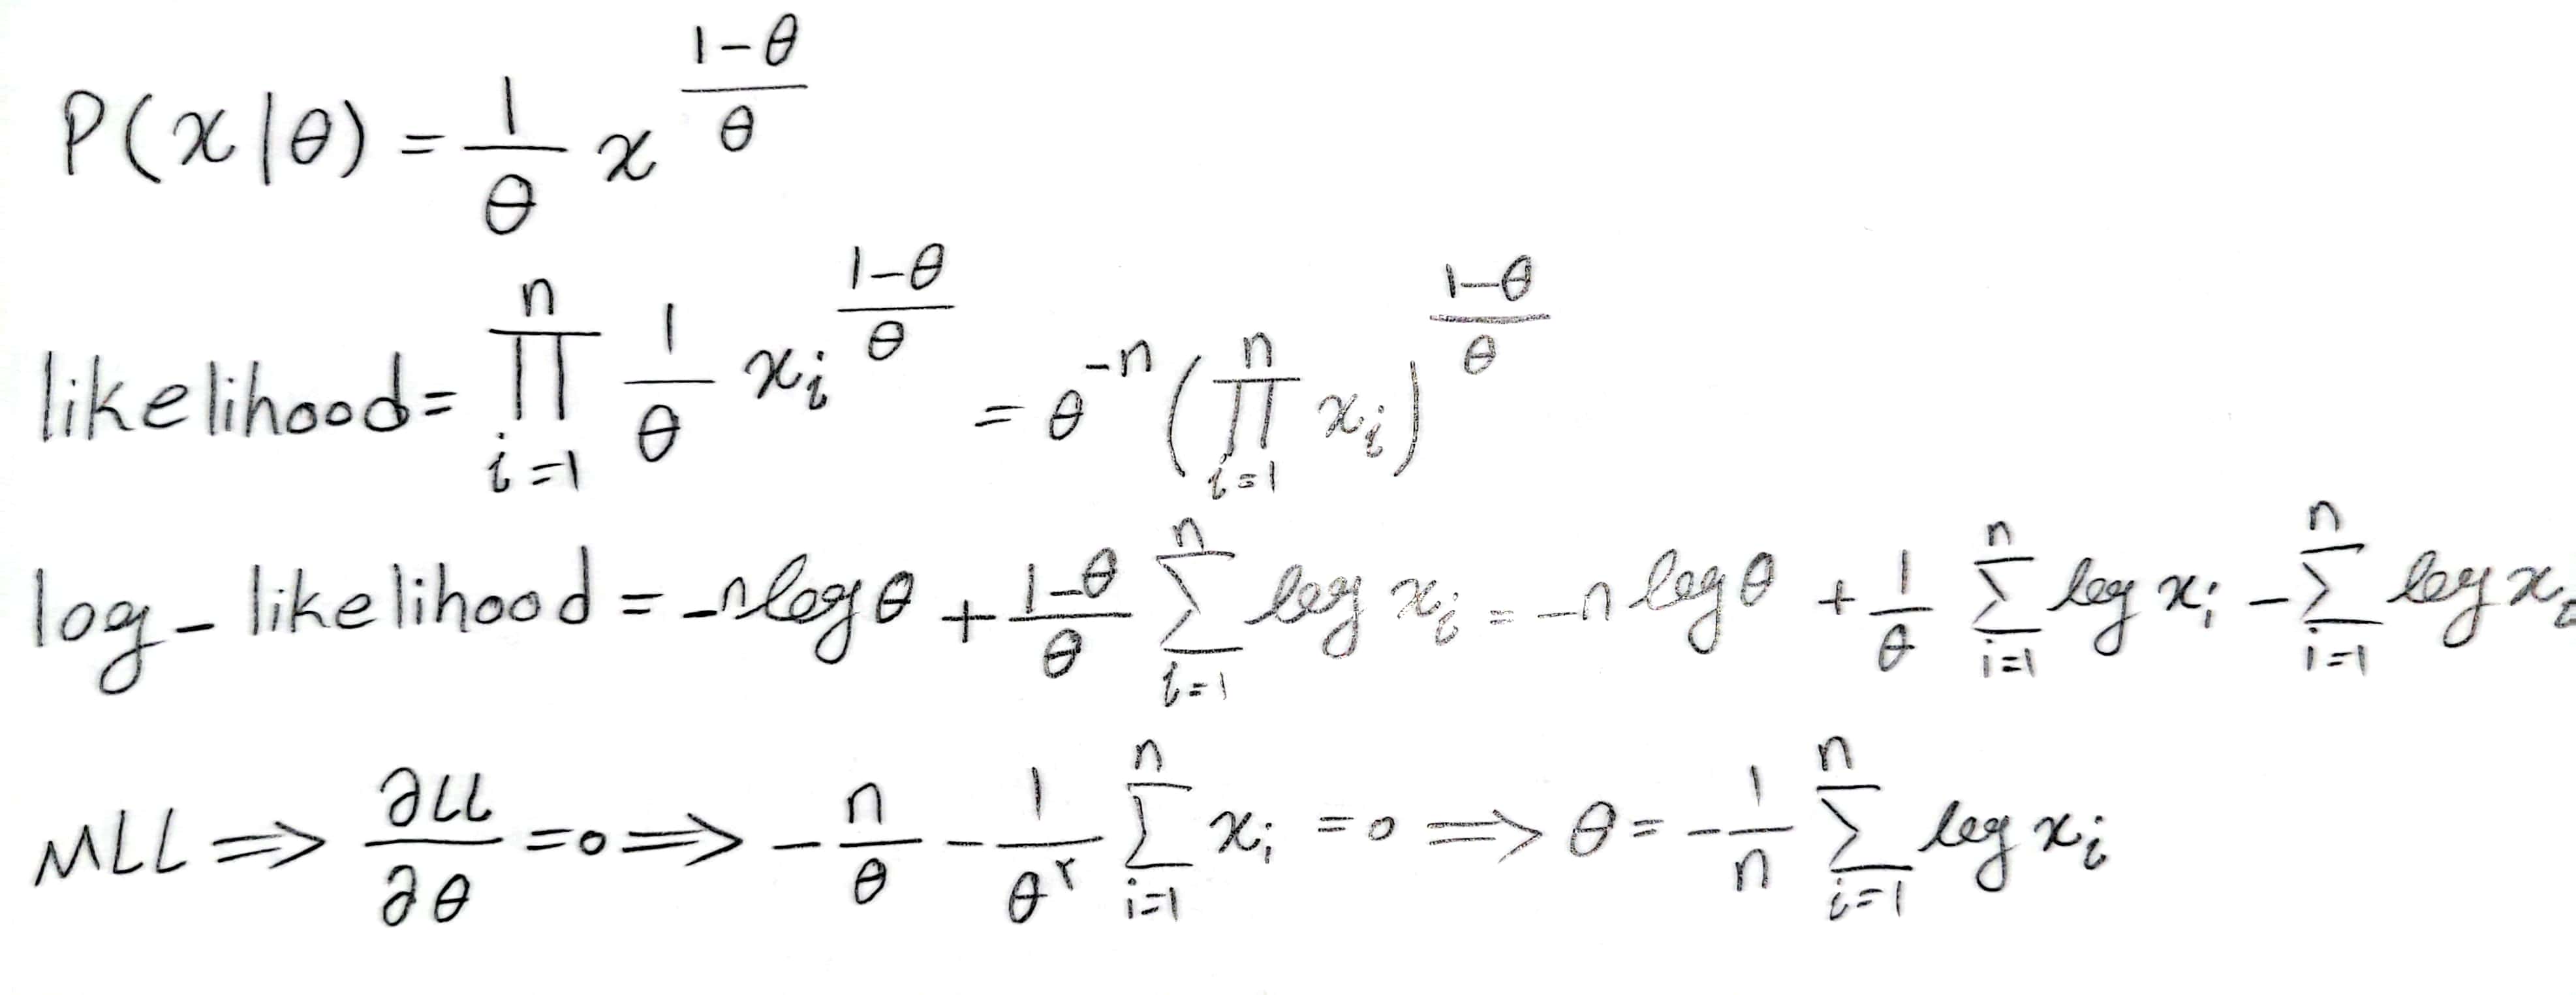 P(x|θ) = 1/θ x^((1-θ)/θ)
likelihood = ∏_{i=1}^{n} 1/θ x_i^((1-θ)/θ) = θ^(-n) (∏_{i=1}^{n} x_i)^((1-θ)/θ)
log-likelihood = -n log θ + (1-θ)/θ ∑_{i=1}^{n} log x_i = -n log θ + 1/θ ∑_{i=1}^{n} log x_i - ∑_{i=1}^{n} log x_i
MLL ⟹ ∂LL/∂θ = 0 ⟹ -n/θ - 1/θ^۲ ∑_{i=1}^{n} x_i = 0 ⟹ θ = -1/n ∑_{i=1}^{n} log x_i